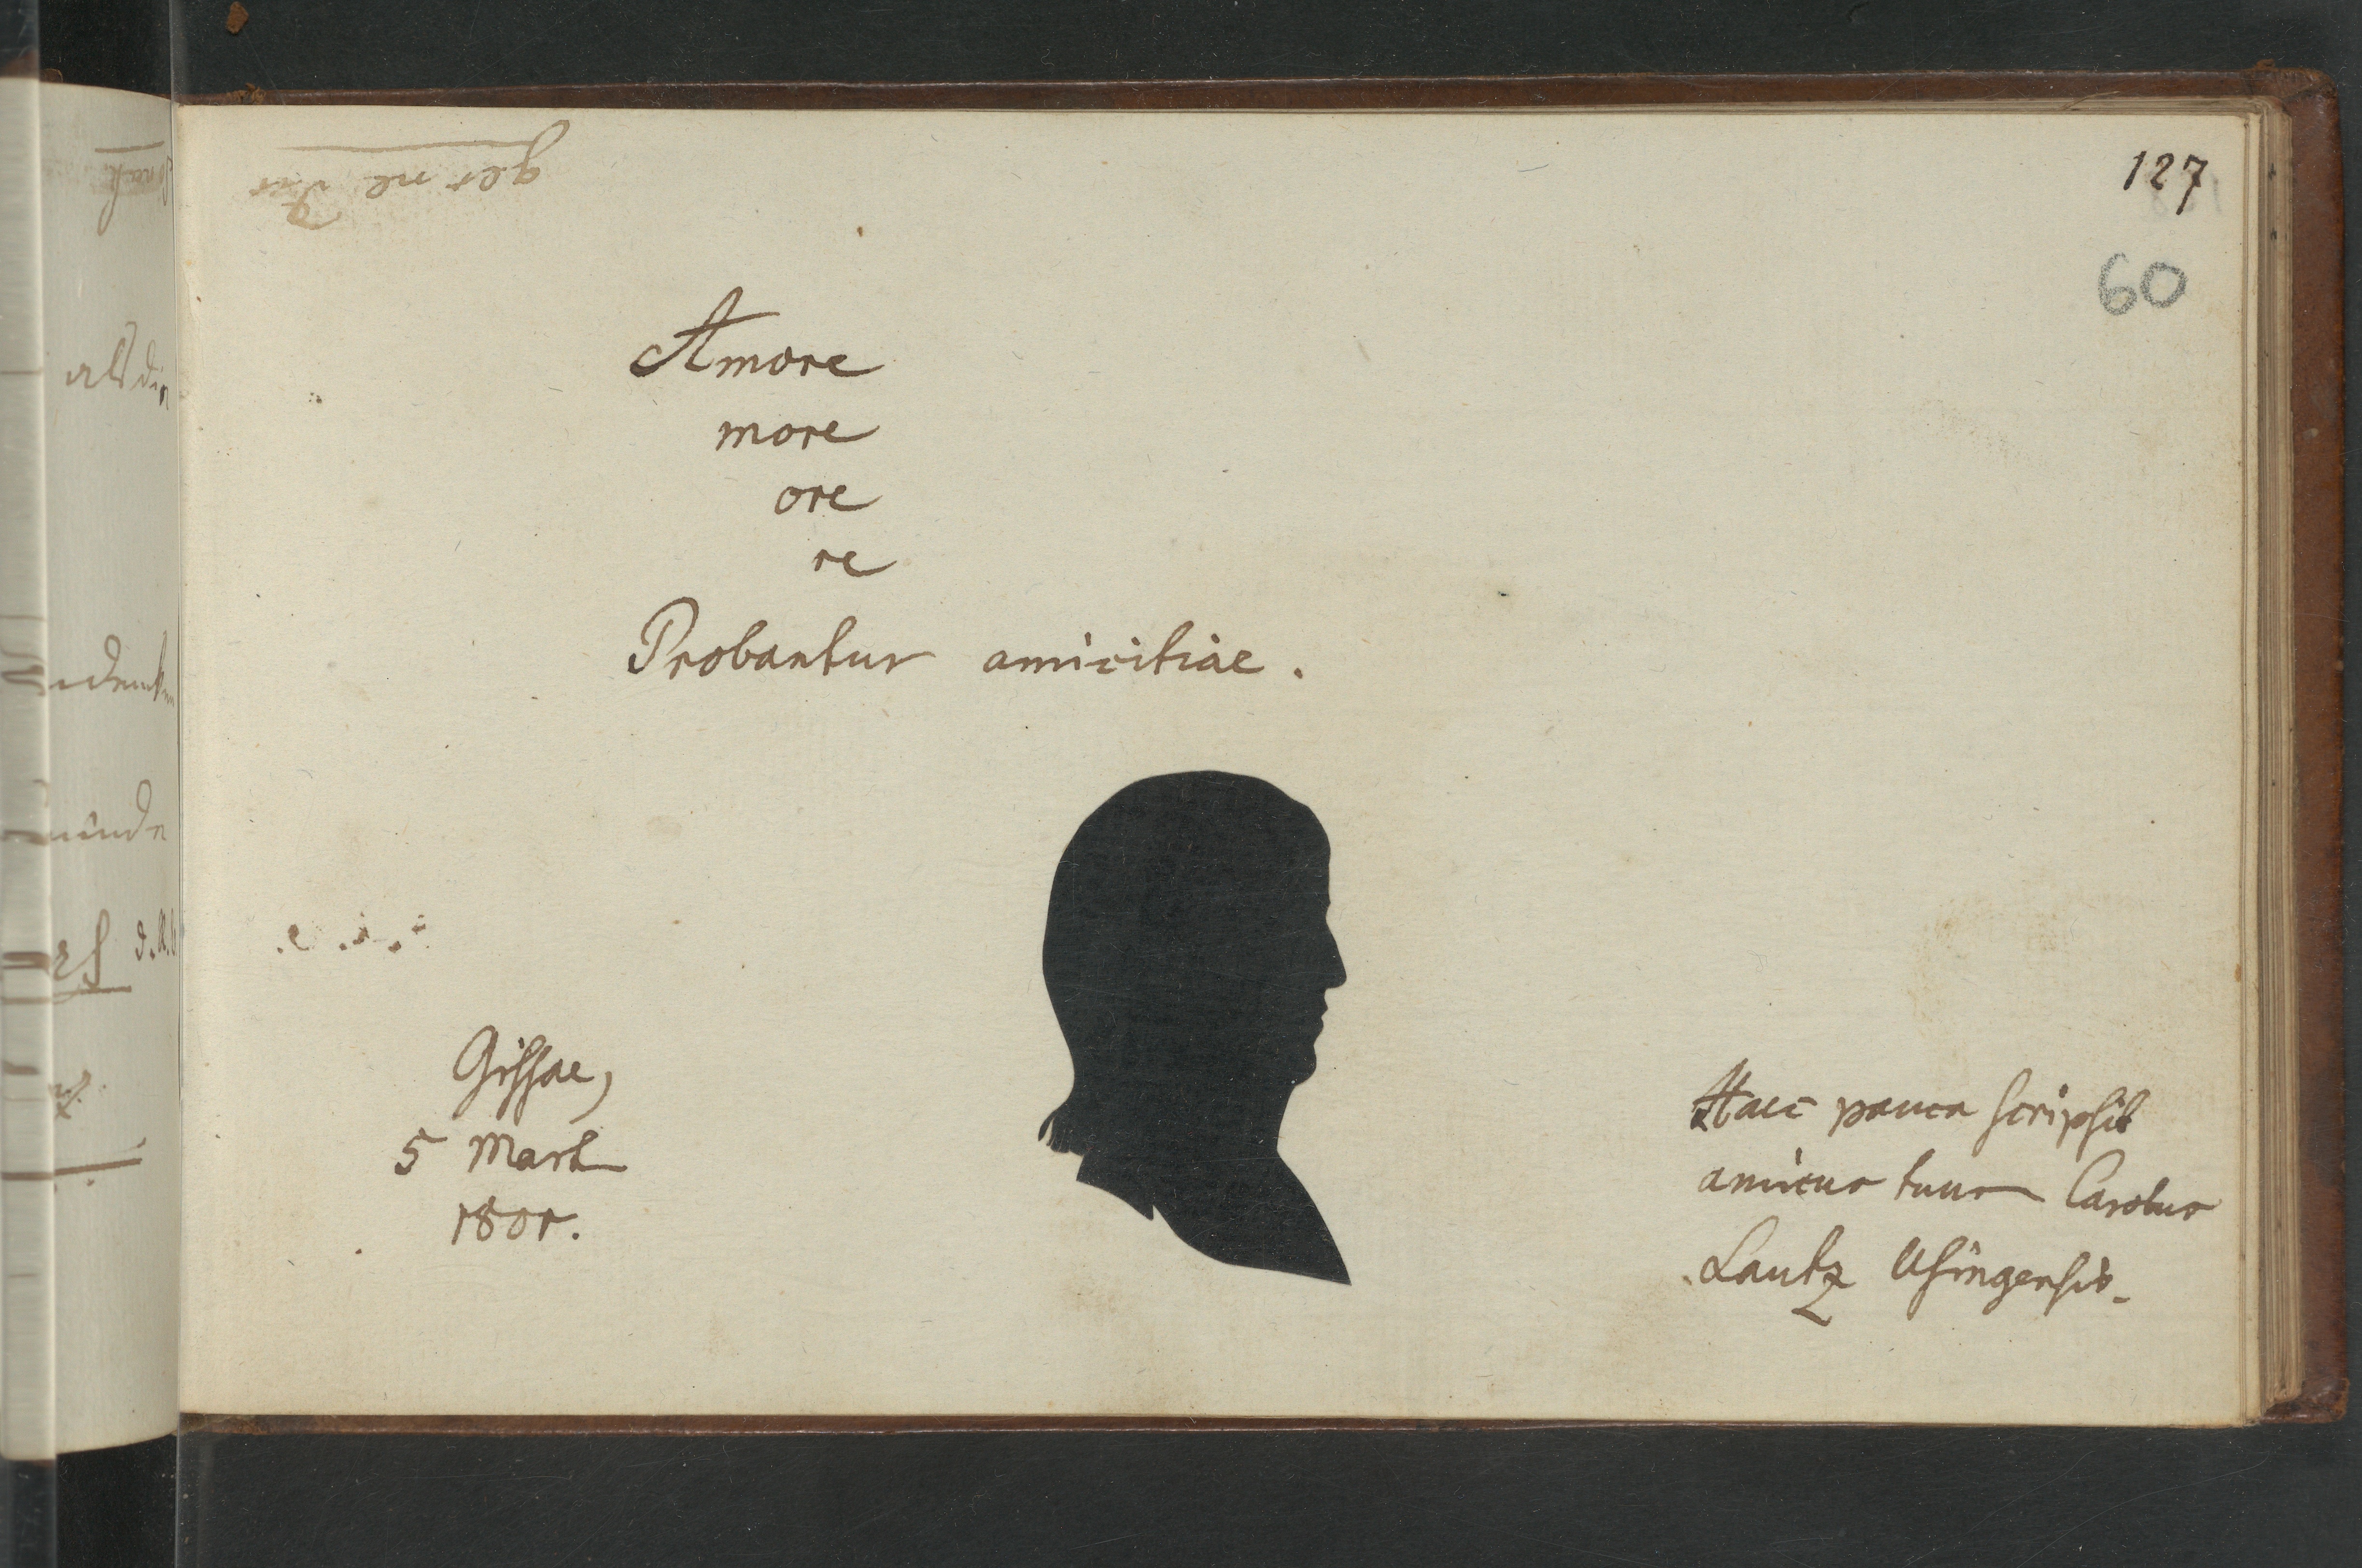 127
60
Amore
more
ore
re
Probantur amicitiae.
Gissae,
5 Mart
1801.
Haec pauca scripsit
amicus tuus Carolus
Lautz Usingensis.